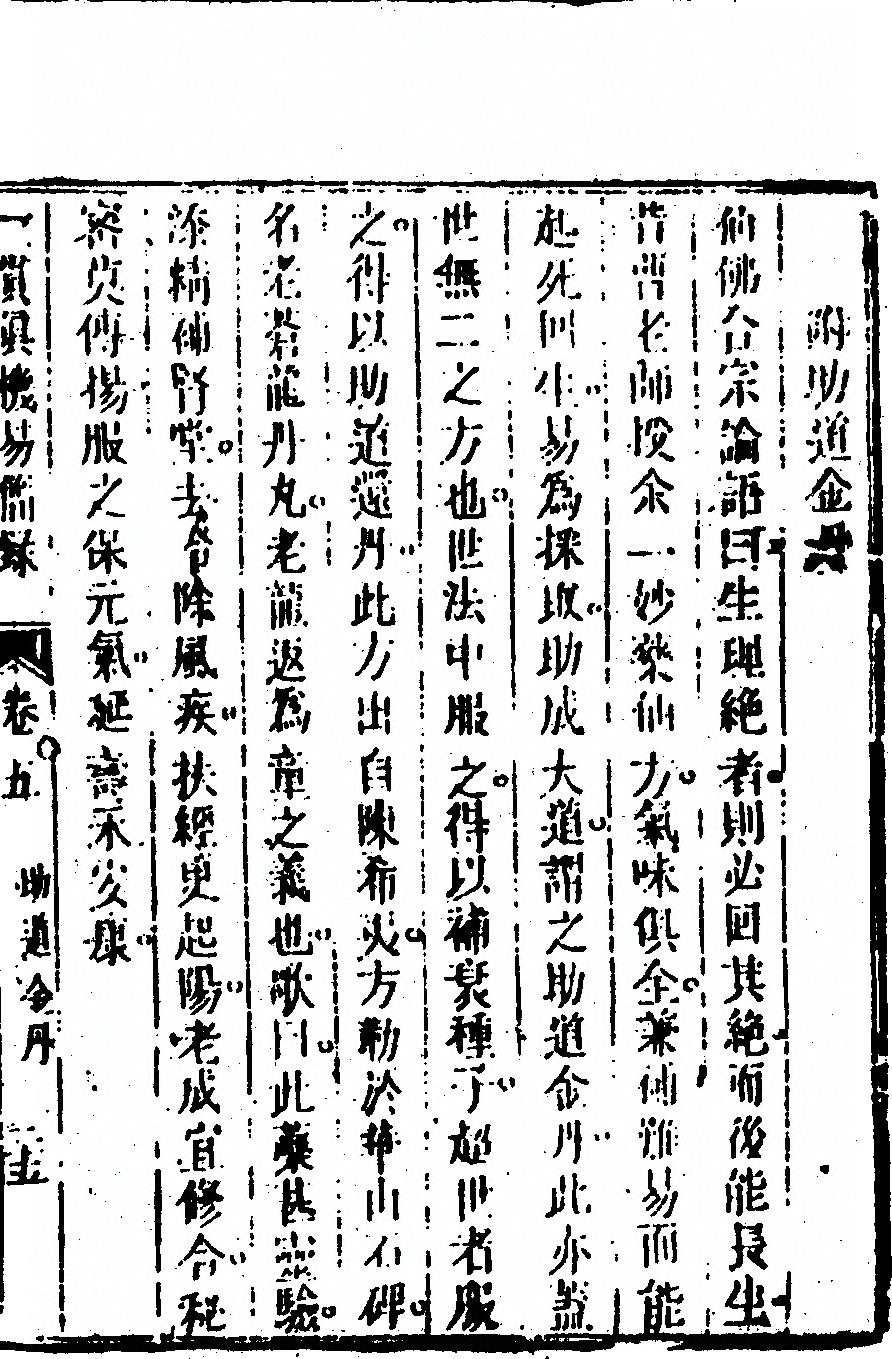 附助道金丹
仙佛合宗論語曰生理絶者則必回其絶而後能長生
昔曹老師授余一妙藥仙方氣味俱全兼補雖易而能
起死回生易爲採取助成大道謂之助道金丹此亦蓋
世無二之方也世法中服之得以補衰種子超世者服
之得以助道還丹此方出自陳希夷方勒於華山石碑
名老蒼龍丹丸老龍返爲童之義也歌曰此藥甚靈驗
添精補腎堂去冷除風疾扶經更起陽老成宜修合秘
密莫傳揚服之保元氣延壽永安康
一貫眞機易簡錄
卷五
助道金丹